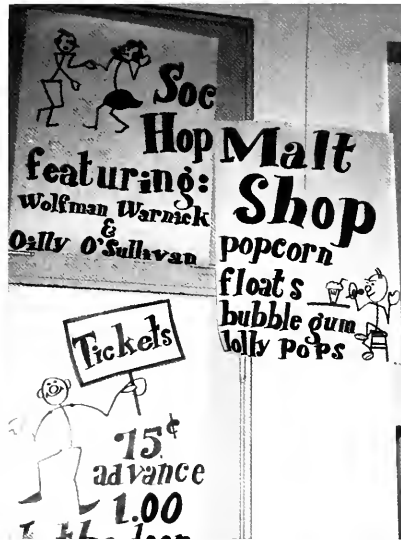 Soc
Hop
featuring:
Wolfman Warnick
&
Oilly O'Sullivan
Malt
Shop
popcorn
floats
bubble gum
lolly pops
Tickets
75¢
advance
1.00